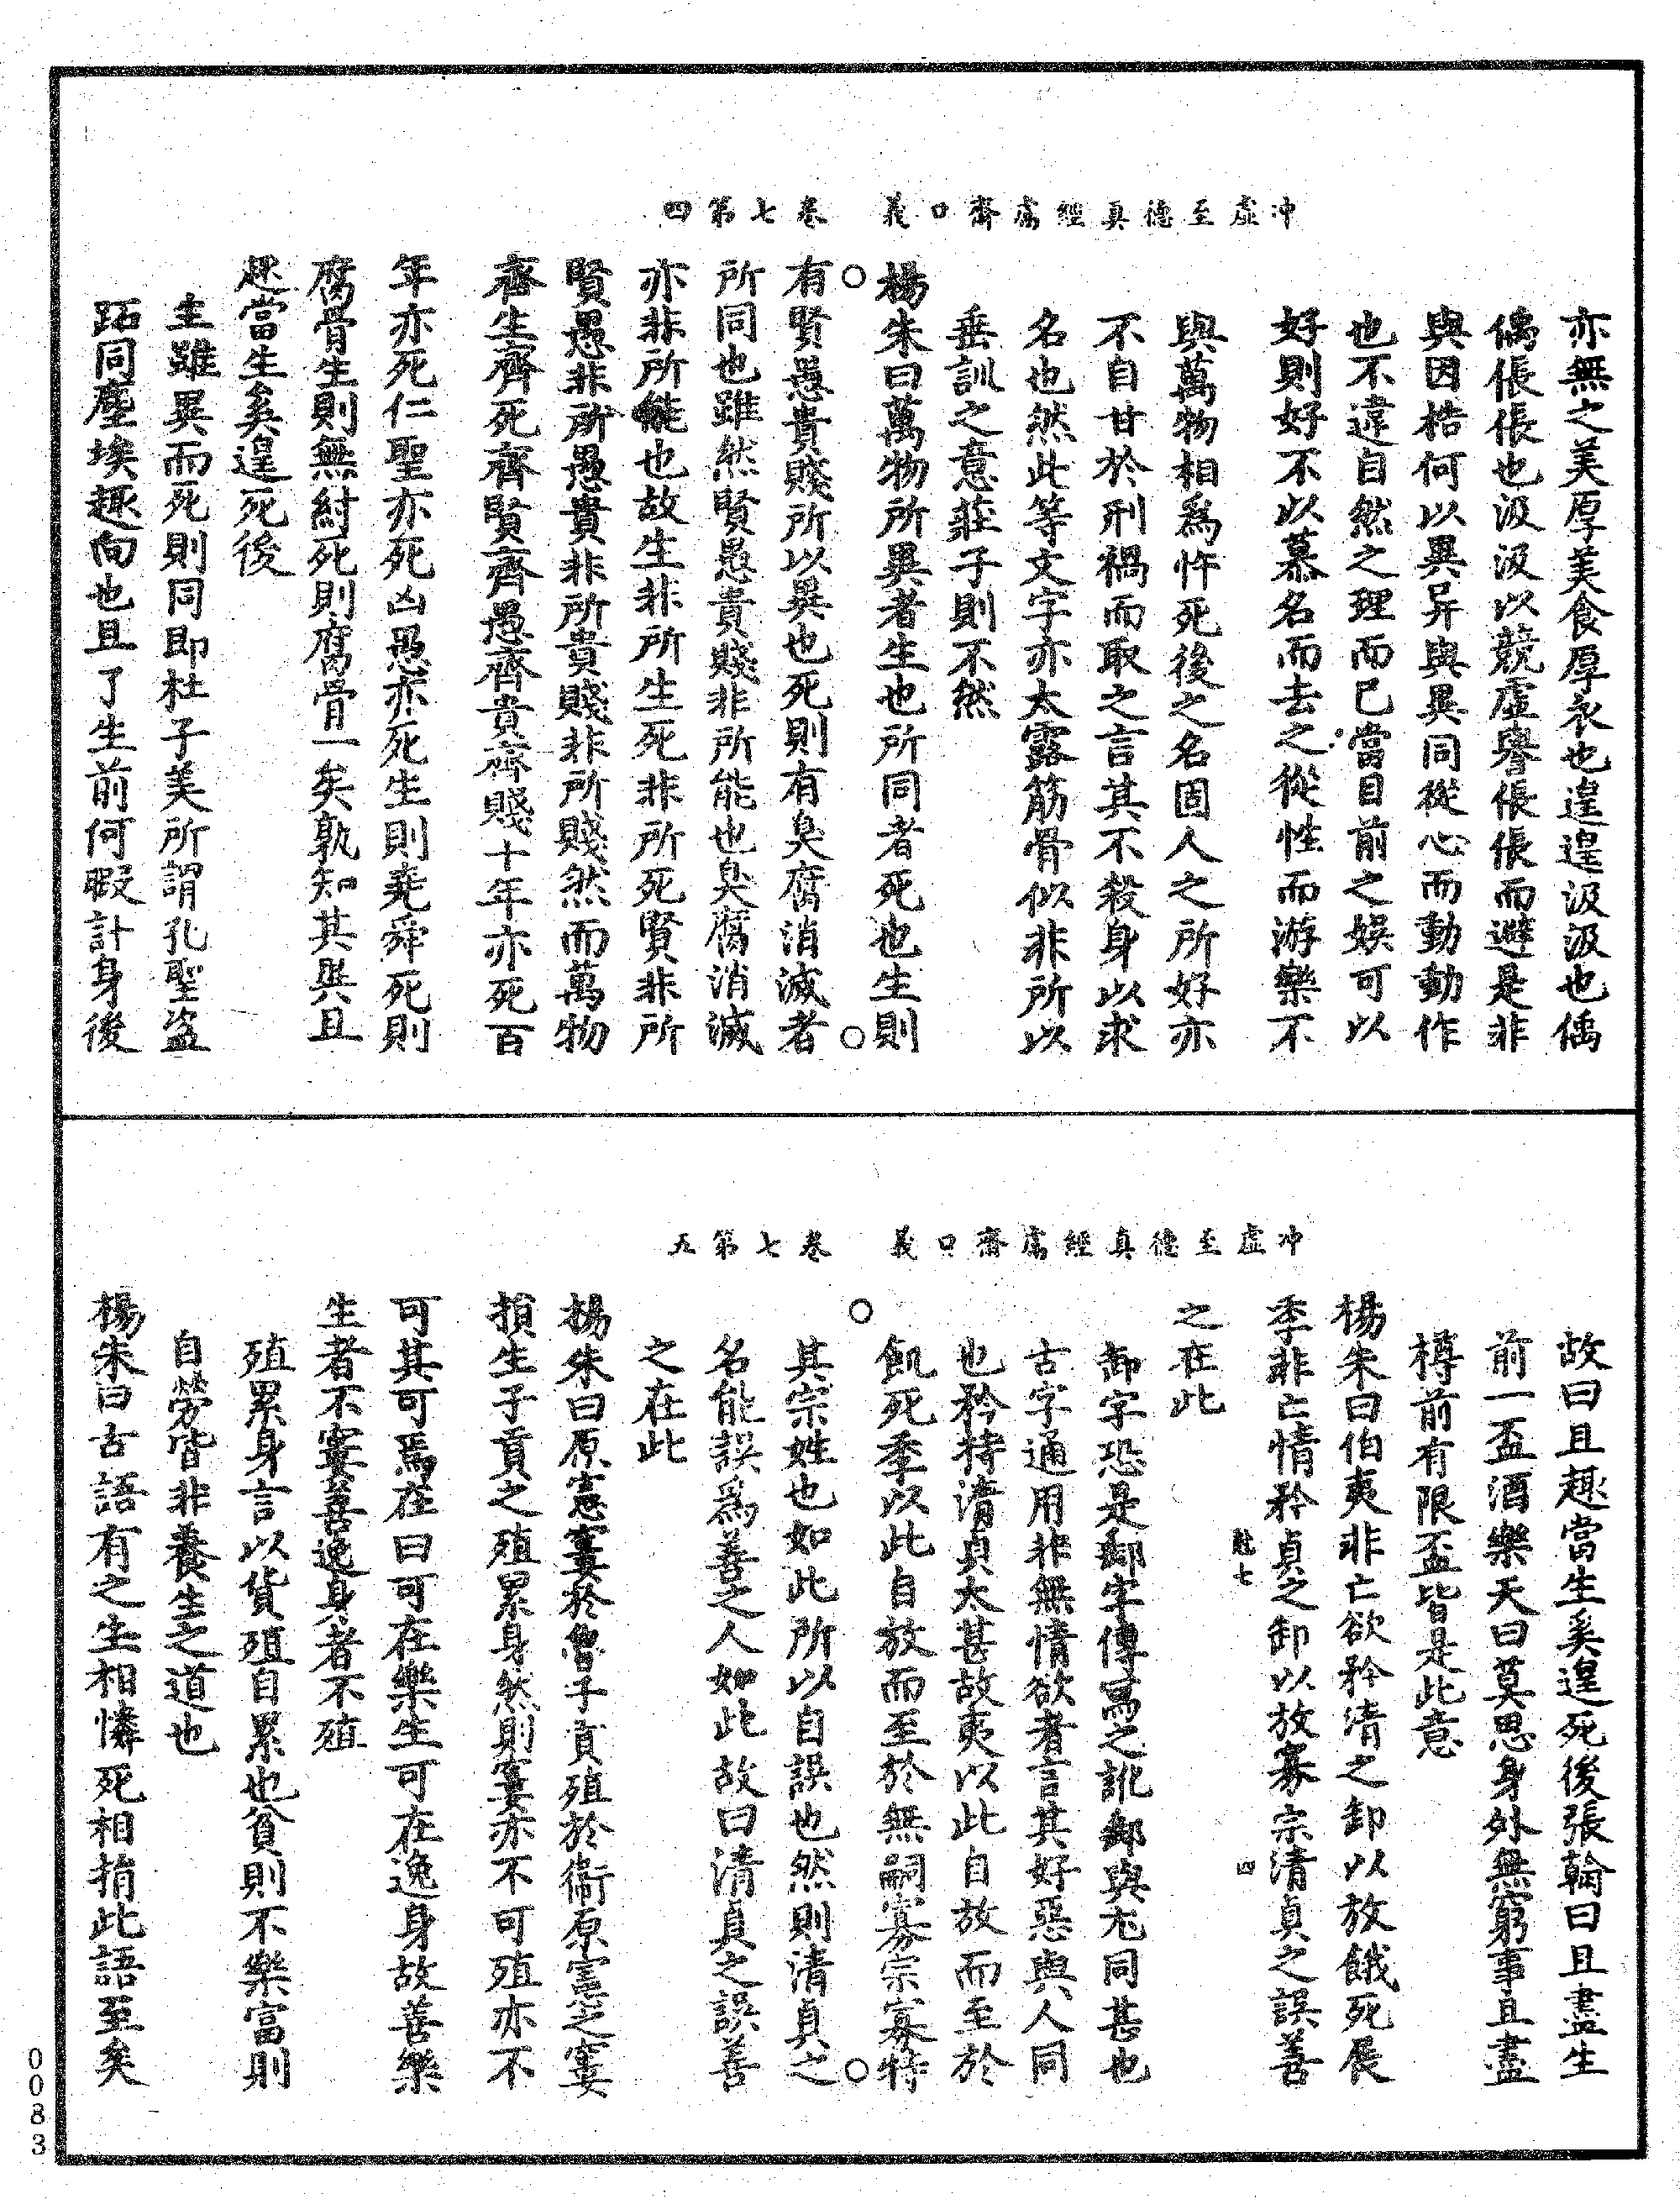 冲虛至德真經鬳齋口義 卷七第四
亦無之美厚美食厚衣也遑遑汲汲也偊
偊倀倀也汲汲以競虛譽倀倀而避是非
與因梏何以異异與異同從心而動動作
也不違自然之理而已當目前之娛可以
好則好不以慕名而去之從性而游樂不
與萬物相爲忤死後之名固人之所好亦
不自甘於刑禍而取之言其不殺身以求
名也然此等文字亦太露筋骨似非所以
垂訓之意莊子則不然
楊朱曰萬物所異者生也所同者死也生則
有賢愚貴賤所以異也死則有臭腐消滅者
所同也雖然賢愚貴賤非所能也臭腐消滅
亦非所能也故生非所生死非所死賢非所
賢愚非所愚貴非所貴賤非所賤然而萬物
齊生齊死齊賢齊愚齊貴齊賤十年亦死百
年亦死仁聖亦死凶愚亦死生則堯舜死則
腐骨生則無紂死則腐骨一矣孰知其異且
趣當生奚遑死後
生雖異而死則同即杜子美所謂孔聖盜
跖同塵埃趣向也且了生前何暇計身後
冲虛至德真經鬳齋口義 卷七第五
故曰且趣當生奚遑死後張翰曰且盡生
前一盃酒樂天曰莫思身外無窮事且盡
樽前有限盃皆是此意
楊朱曰伯夷非亡欲矜清之卸以放餓死展
季非亡情矜貞之卸以放寡宗清貞之誤善
之在此
卸字恐是郵字傳寫之訛郵與尤同甚也
古字通用非無情欲者言其好惡與人同
也矜持清貞太甚故夷以此自放而至於
飢死季以此自放而至於無嗣寡宗寡特
其宗姓也如此所以自誤也然則清貞之
名能誤爲善之人如此故曰清貞之誤善
之在此
楊朱曰原憲窶於魯子貢殖於衞原憲之窶
損生子貢之殖累身然則窶亦不可殖亦不
可其可焉在曰可在樂生可在逸身故善樂
生者不窶善逸身者不殖
殖累身言以貨殖自累也貧則不樂富則
自勞皆非養生之道也
楊朱曰古語有之生相憐死相捐此語至矣
七
四
0083